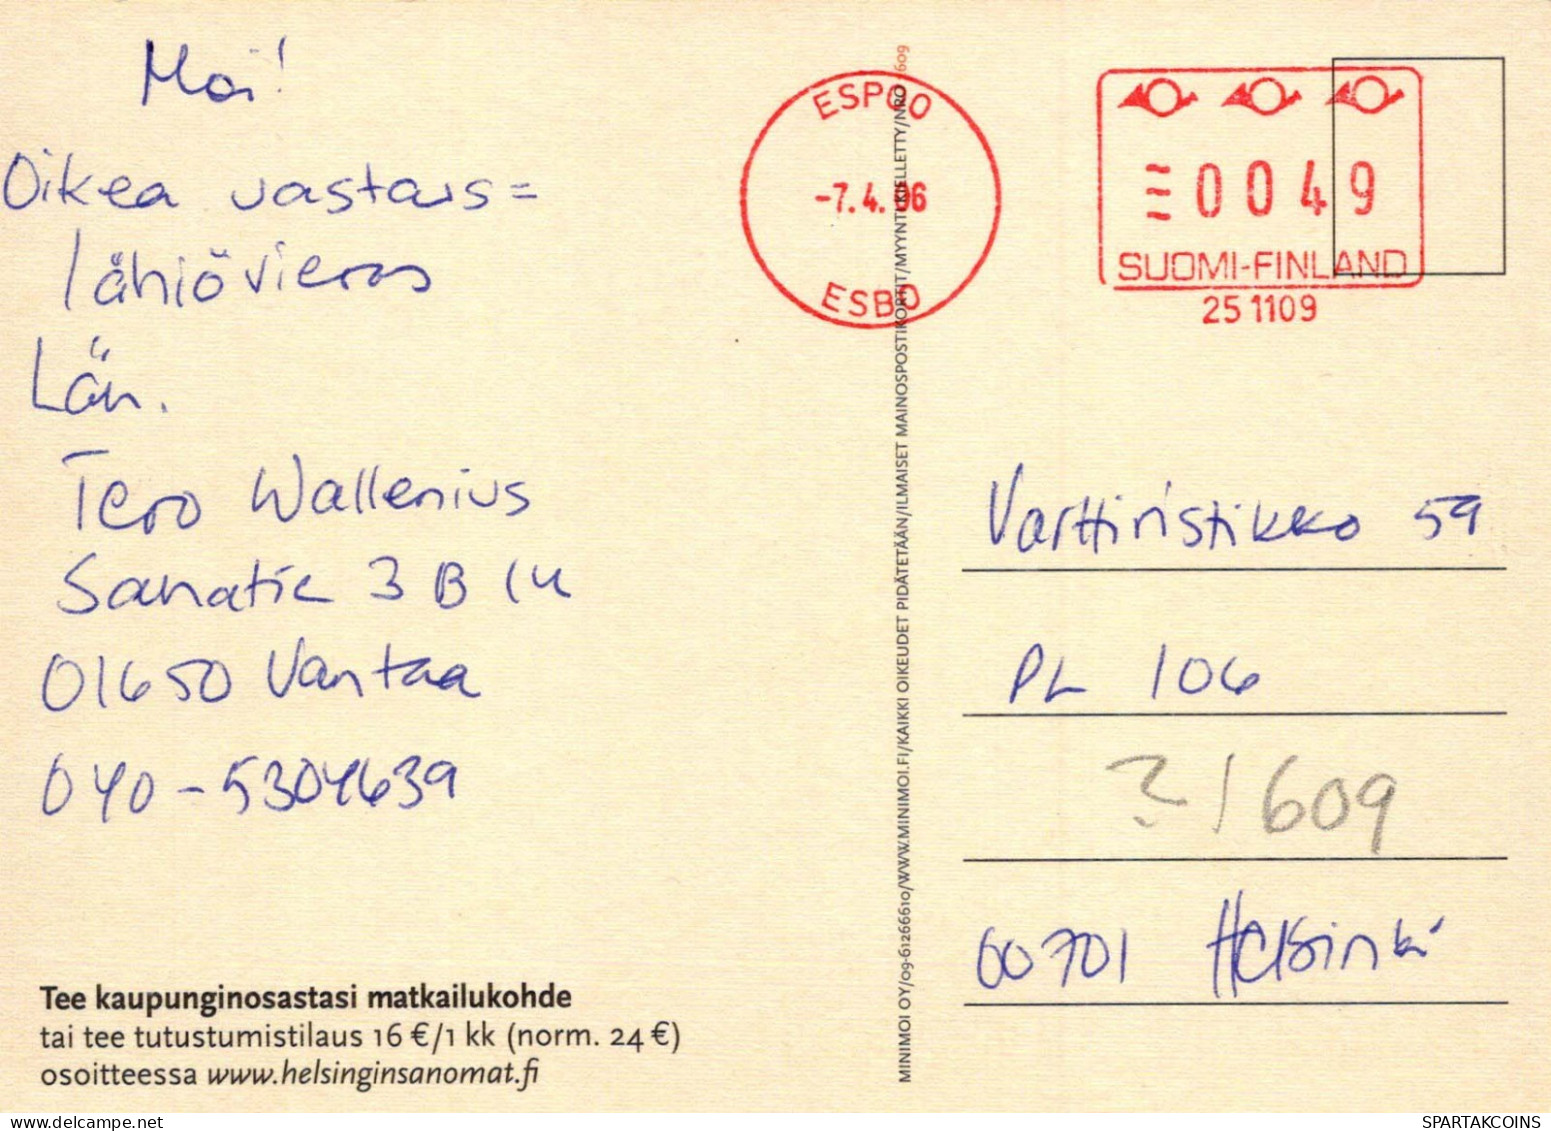 Moi!
Oikea vastaus =
lähiövieras
Läh.
Tero Wallenius
Sanatie 3 B 14
01650 Vantaa
040-5304639
Tee kaupunginosastasi matkailukohde
tai tee tutustumistilaus 16 €/1 kk (norm. 24 €)
osoitteessa www.helsinginsanomat.fi
MINIMOI OY/09-61266610/WWW.MINIMOI.FI/KAIKKI OIKEUDET PIDÄTETÄÄN/ILMAISET MAINOSPOSTIKORTIT/MYYNTI KIELLETTY/NRO 1609
ESPOO
-7.4.06
ESBO
0049
SUOMI-FINLAND
251109
Varttiristikko 59
PL 106
?1609
00701 Helsinki
Delcampe.net
SPARTAKCOINS